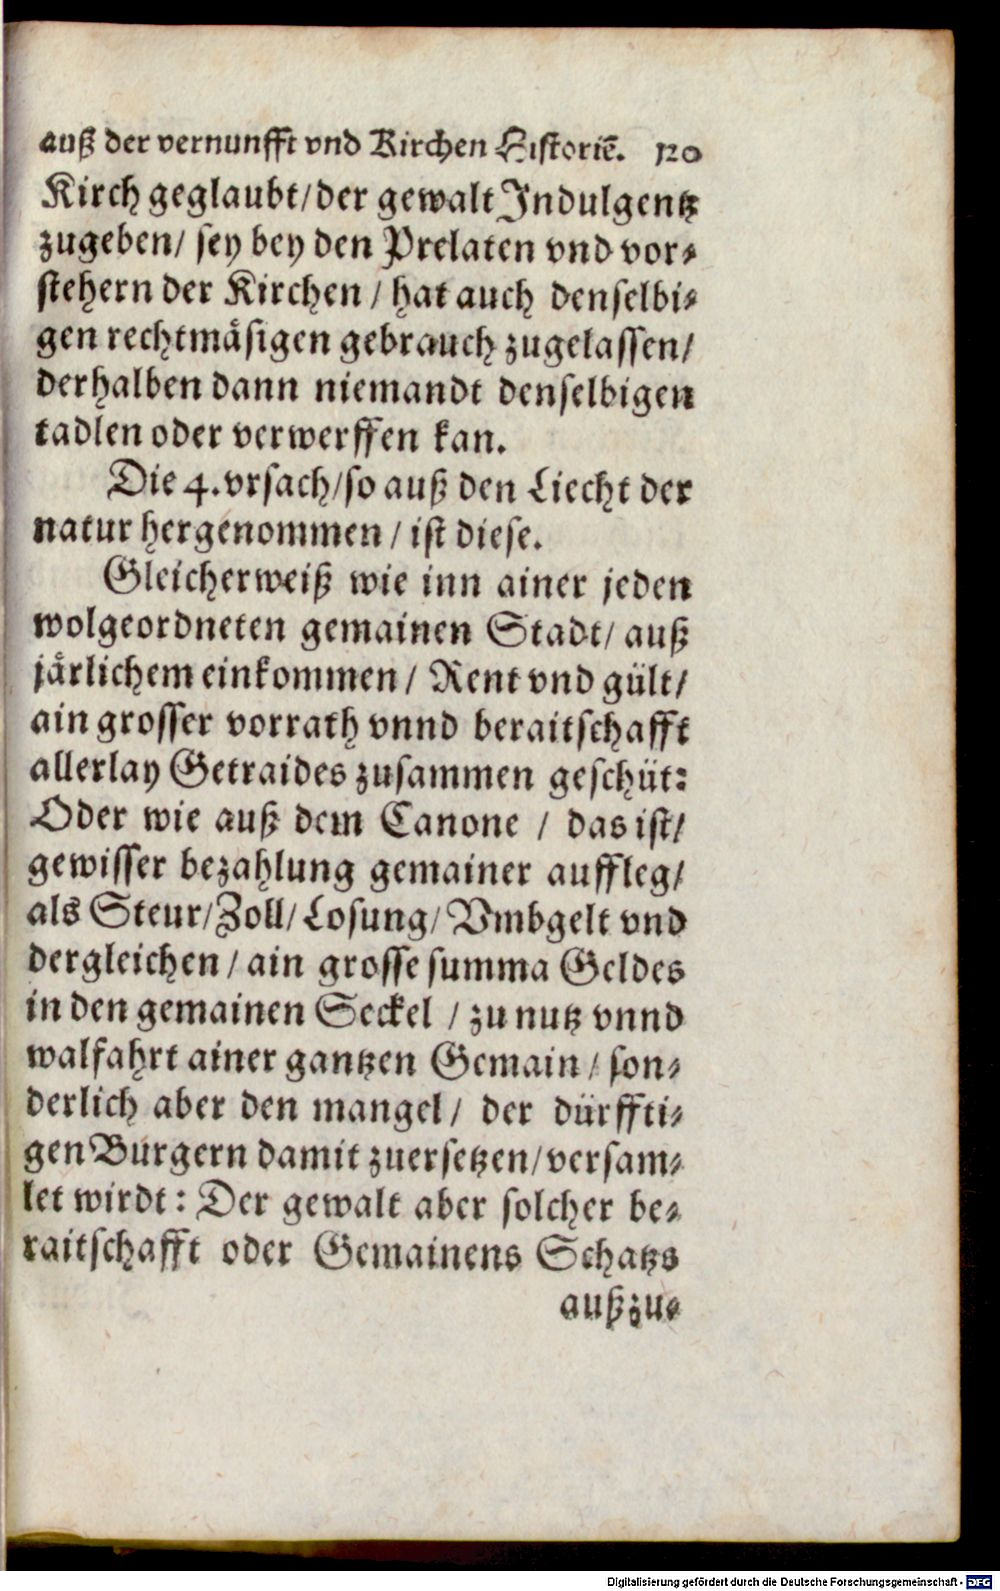 auß der vernunfft vnd Kirchen Historiē. 120
Kirch geglaubt/der gewalt Indulgentz
zugeben/ sey bey den Prelaten vnd vor⸗
stehern der Kirchen / hat auch denselbi⸗
gen rechtmäsigen gebrauch zugelassen/
derhalben dann niemandt denselbigen
tadlen oder verwerffen kan.
Die 4. vrsach/so auß den Liecht der
natur hergenommen / ist diese.
Gleicherweiß wie inn ainer jeden
wolgeordneten gemainen Stadt/ auß
järlichem einkommen / Rent vnd gült/
ain grosser vorrath vnnd beraitschafft
allerlay Getraides zusammen geschüt:
Oder wie auß dem Canone / das ist/
gewisser bezahlung gemainer auffleg/
als Steur/Zoll/Losung/Vmbgelt vnd
dergleichen / ain grosse summa Geldes
in den gemainen Seckel / zu nutz vnnd
walfahrt ainer gantzen Gemain / son⸗
derlich aber den mangel / der dürffti⸗
gen Burgern damit zuersetzen/versam⸗
let wirdt : Der gewalt aber solcher be⸗
raitschafft oder Gemainens Schatzs
auß zu⸗
Digitalisierung gefördert durch die Deutsche Forschungsgemeinschaft - DFG